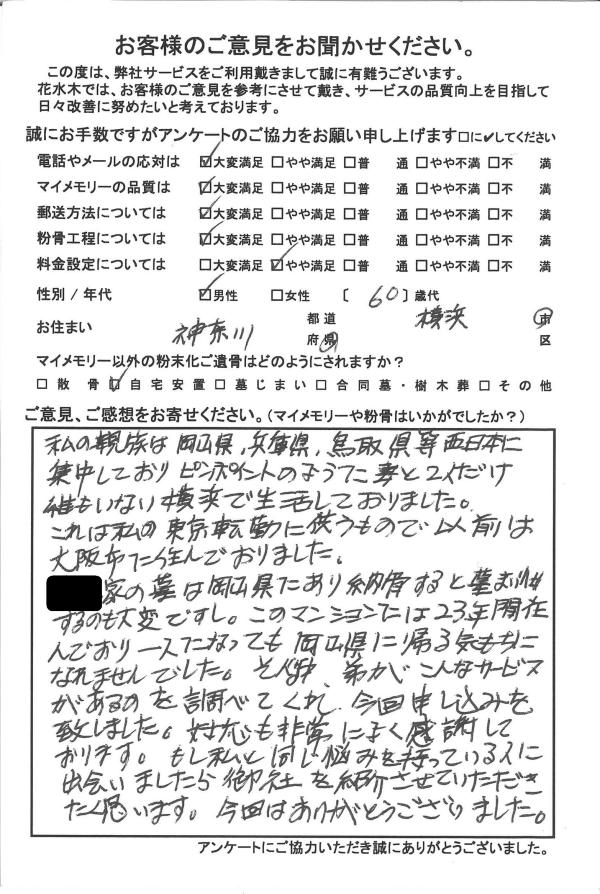 お客様のご意見をお聞かせください。
この度は、弊社サービスをご利用戴きまして誠に有難うございます。
花水木では、お客様のご意見を参考にさせて戴き、サービスの品質向上を目指して
日々改善に努めたいと考えております。
誠にお手数ですがアンケートのご協力をお願い申し上げます□に✓してください
電話やメールの応対は ☑大変満足 □やや満足 □普 通 □やや不満 □不 満
マイメモリーの品質は ☑大変満足 □やや満足 □普 通 □やや不満 □不 満
郵送方法については ☑大変満足 □やや満足 □普 通 □やや不満 □不 満
粉骨工程については ☑大変満足 □やや満足 □普 通 □やや不満 □不 満
料金設定については □大変満足 ☑やや満足 □普 通 □やや不満 □不 満
性別 / 年代 ☑男性 □女性 〔 60 〕歳代
お住まい 神奈川 都道府県 横浜 市区
マイメモリー以外の粉末化ご遺骨はどのようにされますか？
□散 骨 ☑自宅安置 □墓じまい □合同墓・樹木葬 □その他
ご意見、ご感想をお寄せください。(マイメモリーや粉骨はいかがでしたか？)
私の親族は岡山県、兵庫県、鳥取県等西日本に
集中しており ピンポイントのように妻と2人だけ
誰もいない横浜で生活しておりました。
これは私の東京転勤に伴うもので以前は
大阪市に住んでおりました。
家の墓は岡山県にあり納骨すると墓まいり
するのも大変ですし。このマンションには23年間住
んでおり一人になっても岡山県に帰る気もちに
なれませんでした。そんな中、弟がこんなサービス
があるのを調べてくれ、今回申し込みを
致しました。対応も非常によく感謝して
おります。もし私と同じ悩みを持っている人に
出会いましたら御社を紹介させていただき
たく思います。今回はありがとうございました。
アンケートにご協力いただき誠にありがとうございました。